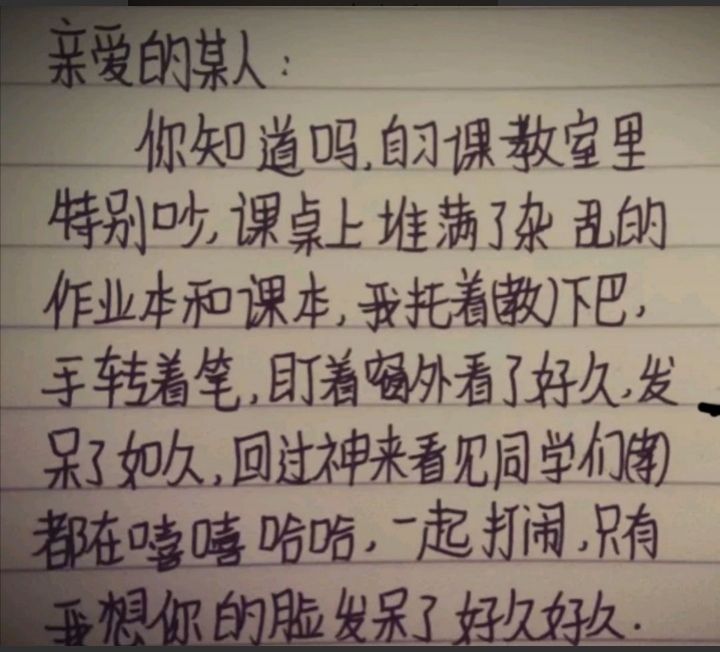 亲爱的某人:
你知道吗,自习课教室里
特别吵,课桌上堆满了杂乱的
作业本和课本,我托着(教)下巴,
手转着笔,盯着窗外看了好久,发
呆了如久,回过神来看见同学们()
都在嘻嘻哈哈,一起打闹,只有
我想你的脸发呆了好久好久.